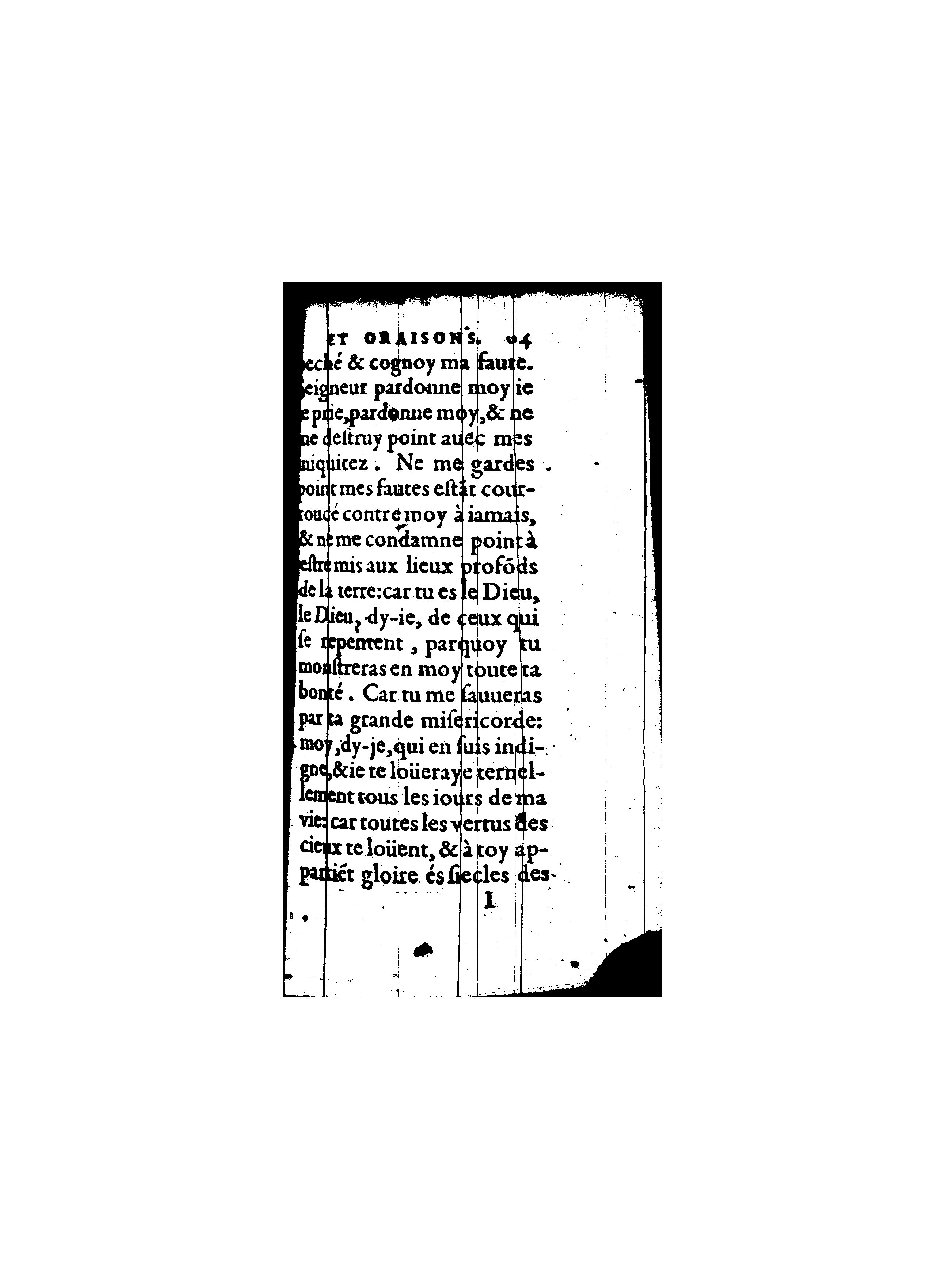 ET ORAISONS. 64
peché & cognoy ma faute.
Seigneur pardonne moy ie
te prie, pardonne moy, & ne
me deſtruy point auec mes
iniquitez. Ne me gardes
point mes fautes eſtāt cour-
roucé contre moy à iamais,
& ne me condamne point à
eſtre mis aux lieux profōds
de la terre: car tu es le Dieu,
le Dieu, dy-ie, de ceux qui
ſe repentent, parquoy tu
monſtreras en moy toute ta
bonté. Car tu me ſauueras
par ta grande miſericorde:
moy, dy-je, qui en ſuis indi-
gne, & ie te loüeraye ternel-
lement tous les iours de ma
vie: car toutes les vertus des
cieux te loüent, & à toy ap-
partiēt gloire és ſiecles des
I